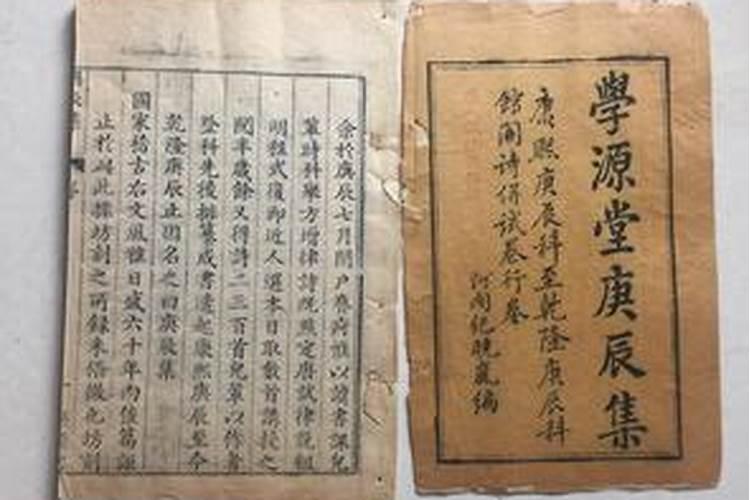 學源堂庚辰集
康熙庚辰科至乾隆庚辰科
館閣詩併試卷行卷
河間紀曉嵐編
余於庚辰七月閉戶養疴惟以讀書課兒
輩時科舉方增律詩既點定唐試律說粗
明程式復即近人選本日取數首講授之
閱半歲餘又得詩二三百首兒輩以作者
登科先後排纂成書適起康熙庚辰至今
乾隆庚辰止因名之曰庚辰集
國家稽古右文風雅日盛六十年內佳篇
止於此據坊刻之所錄坊刻